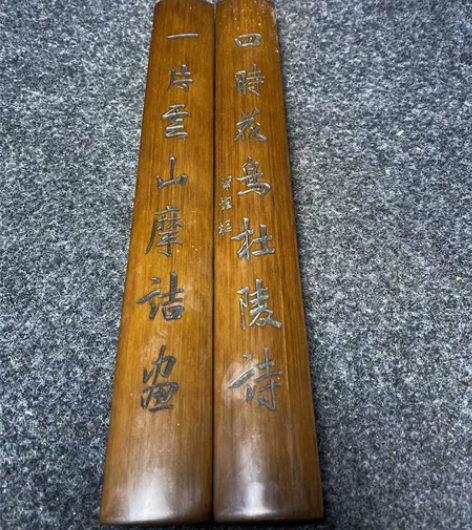 四時花鳥杜陵詩
一片雲山摩詰畫